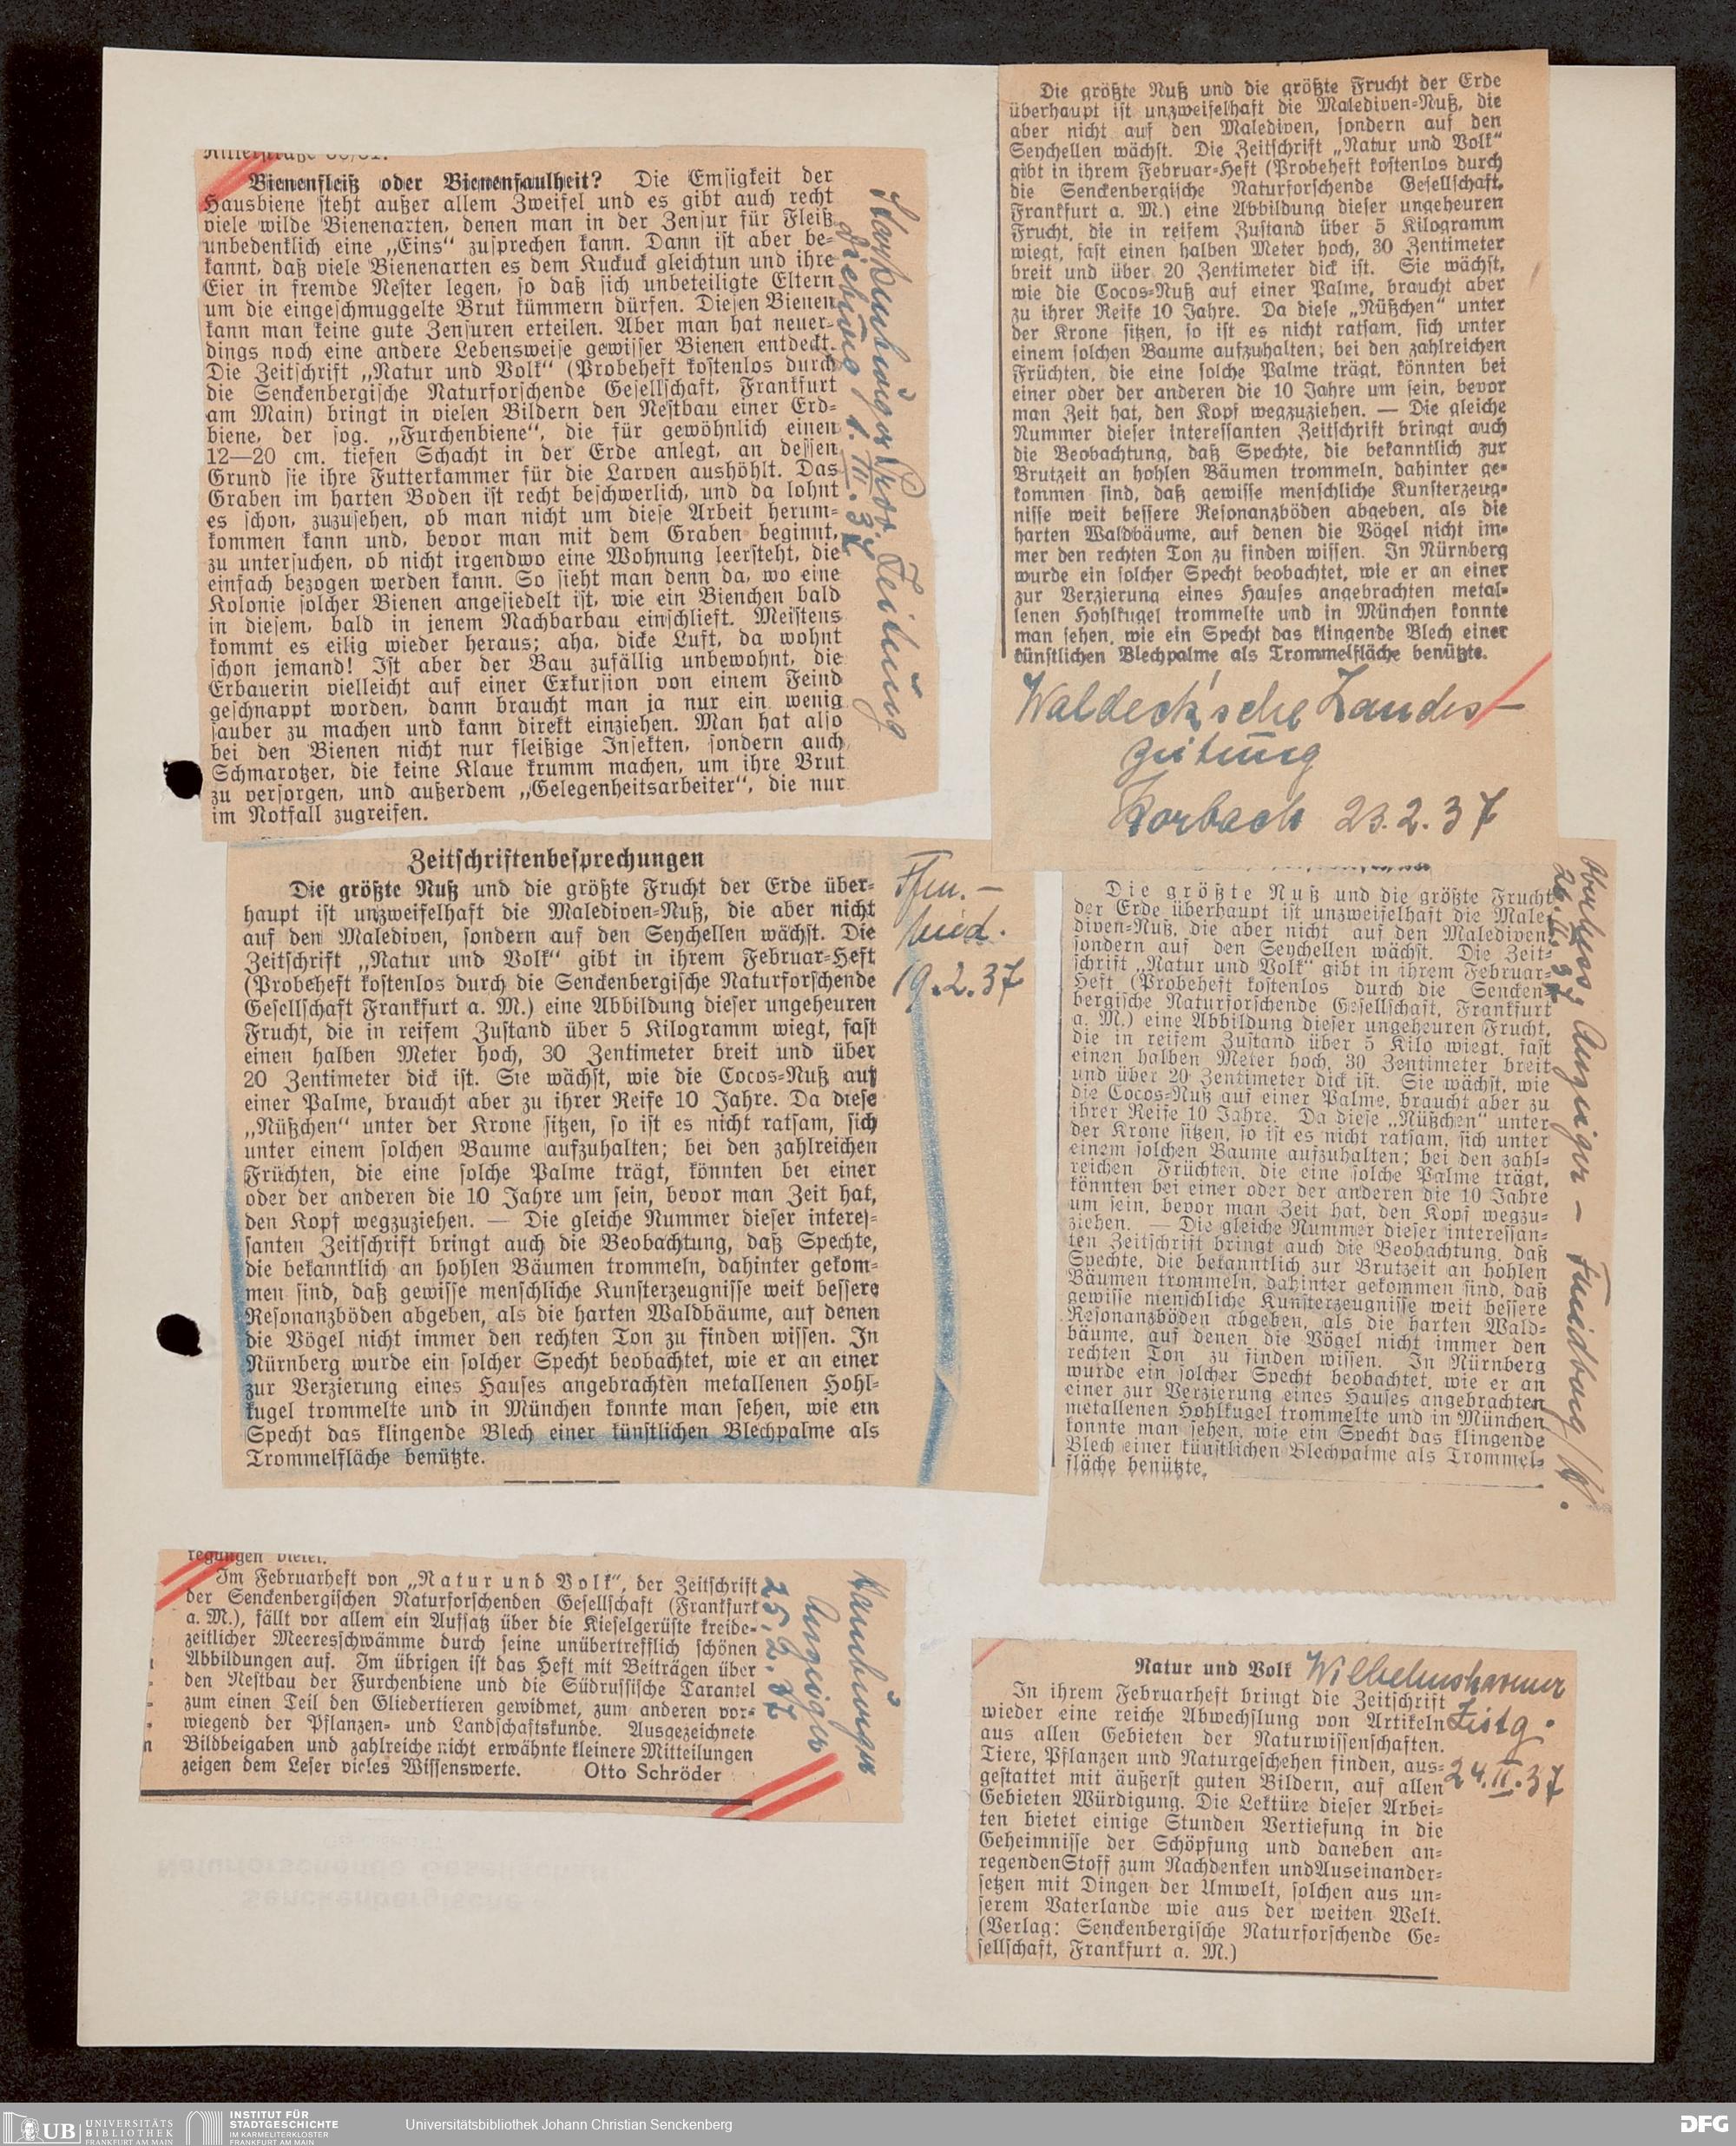 Bienenfleiß oder Bienenfaulheit? Die Emsigkeit der
Hausbiene steht außer allem Zweifel und es gibt auch recht
viele wilde Bienenarten, denen man in der Zensur für Fleiß
unbedenklich eine „Eins“ zusprechen kann. Dann ist aber be-
kannt, daß viele Bienenarten es dem Kuckuck gleichtun und ihre
Eier in fremde Nester legen, so daß sich unbeteiligte Eltern
um die eingeschmuggelte Brut kümmern dürfen. Diesen Bienen
kann man keine gute Zensuren erteilen. Aber man hat neuer-
dings noch eine andere Lebensweise gewisser Bienen entdeckt.
Die Zeitschrift „Natur und Volk“ (Probeheft kostenlos durch
die Senckenbergische Naturforschende Gesellschaft, Frankfurt
am Main) bringt in vielen Bildern den Nestbau einer Erd-
biene, der sog. „Furchenbiene“, die für gewöhnlich einen
12—20 cm. tiefen Schacht in der Erde anlegt, an dessen
Grund sie ihre Futterkammer für die Larven aushöhlt. Das
Graben im harten Boden ist recht beschwerlich, und da lohnt
es schon, zuzusehen, ob man nicht um diese Arbeit herum-
kommen kann und, bevor man mit dem Graben beginnt,
zu untersuchen, ob nicht irgendwo eine Wohnung leersteht, die
einfach bezogen werden kann. So sieht man denn da, wo eine
Kolonie solcher Bienen angesiedelt ist, wie ein Bienchen bald
in diesem, bald in jenem Nachbarbau einschlieft. Meistens
kommt es eilig wieder heraus; aha, dicke Luft, da wohnt
schon jemand! Ist aber der Bau zufällig unbewohnt, die
Erbauerin vielleicht auf einer Exkursion von einem Feind
geschnappt worden, dann braucht man ja nur ein wenig
sauber zu machen und kann direkt einziehen. Man hat also
bei den Bienen nicht nur fleißige Insekten, sondern auch
Schmarotzer, die keine Klaue krumm machen, um ihre Brut
zu versorgen, und außerdem „Gelegenheitsarbeiter“, die nur
im Notfall zugreifen.
Starkenburger Prov. Zeitung
Dieburg 1. III. 37
Die größte Nuß und die größte Frucht der Erde
überhaupt ist unzweifelhaft die Malediven-Nuß, die
aber nicht auf den Malediven, sondern auf den
Seychellen wächst. Die Zeitschrift „Natur und Volk“
gibt in ihrem Februar-Heft (Probeheft kostenlos durch
die Senckenbergische Naturforschende Gesellschaft,
Frankfurt a. M.) eine Abbildung dieser ungeheuren
Frucht, die in reifem Zustand über 5 Kilogramm
wiegt, fast einen halben Meter hoch, 30 Zentimeter
breit und über 20 Zentimeter dick ist. Sie wächst,
wie die Cocos-Nuß auf einer Palme, braucht aber
zu ihrer Reife 10 Jahre. Da diese „Nüßchen“ unter
der Krone sitzen, so ist es nicht ratsam, sich unter
einem solchen Baume aufzuhalten; bei den zahlreichen
Früchten, die eine solche Palme trägt, könnten bei
einer oder der anderen die 10 Jahre um sein, bevor
man Zeit hat, den Kopf wegzuziehen. — Die gleiche
Nummer dieser interessanten Zeitschrift bringt auch
die Beobachtung, daß Spechte, die bekanntlich zur
Brutzeit an hohlen Bäumen trommeln, dahinter ge-
kommen sind, daß gewisse menschliche Kunsterzeug-
nisse weit bessere Resonanzböden abgeben, als die
harten Waldbäume, auf denen die Vögel nicht im-
mer den rechten Ton zu finden wissen. In Nürnberg
wurde ein solcher Specht beobachtet, wie er an einer
zur Verzierung eines Hauses angebrachten metal-
lenen Hohlkugel trommelte und in München konnte
man sehen, wie ein Specht das klingende Blech einer
künstlichen Blechpalme als Trommelfläche benützte.
Waldeck'sche Landes-
zeitung
Korbach 23.2.37
Zeitschriftenbesprechungen
Die größte Nuß und die größte Frucht der Erde über-
haupt ist unzweifelhaft die Malediven-Nuß, die aber nicht
auf den Malediven, sondern auf den Seychellen wächst. Die
Zeitschrift „Natur und Volk“ gibt in ihrem Februar-Heft
(Probeheft kostenlos durch die Senckenbergische Naturforschende
Gesellschaft Frankfurt a. M.) eine Abbildung dieser ungeheuren
Frucht, die in reifem Zustand über 5 Kilogramm wiegt, fast
einen halben Meter hoch, 30 Zentimeter breit und über
20 Zentimeter dick ist. Sie wächst, wie die Cocos-Nuß auf
einer Palme, braucht aber zu ihrer Reife 10 Jahre. Da diese
„Nüßchen“ unter der Krone sitzen, so ist es nicht ratsam, sich
unter einem solchen Baume aufzuhalten; bei den zahlreichen
Früchten, die eine solche Palme trägt, könnten bei einer
oder der anderen die 10 Jahre um sein, bevor man Zeit hat,
den Kopf wegzuziehen. — Die gleiche Nummer dieser interes-
santen Zeitschrift bringt auch die Beobachtung, daß Spechte,
die bekanntlich an hohlen Bäumen trommeln, dahinter gekom-
men sind, daß gewisse menschliche Kunsterzeugnisse weit bessere
Resonanzböden abgeben, als die harten Waldbäume, auf denen
die Vögel nicht immer den rechten Ton zu finden wissen. In
Nürnberg wurde ein solcher Specht beobachtet, wie er an einer
zur Verzierung eines Hauses angebrachten metallenen Hohl-
kugel trommelte und in München konnte man sehen, wie ein
Specht das klingende Blech einer künstlichen Blechpalme als
Trommelfläche benützte.
19.2.37
Die größte Nuß und die größte Frucht
der Erde überhaupt ist unzweifelhaft die Male-
diven-Nuß, die aber nicht auf den Malediven,
sondern auf den Seychellen wächst. Die Zeit-
schrift „Natur und Volk“ gibt in ihrem Februar-
Heft (Probeheft kostenlos durch die Sencken-
bergische Naturforschende Gesellschaft, Frankfurt
a. M.) eine Abbildung dieser ungeheuren Frucht,
die in reifem Zustand über 5 Kilo wiegt, fast
einen halben Meter hoch, 30 Zentimeter breit
und über 20 Zentimeter dick ist. Sie wächst, wie
die Cocos-Nuß auf einer Palme, braucht aber zu
ihrer Reife 10 Jahre. Da diese „Nüßchen“ unter
der Krone sitzen, so ist es nicht ratsam, sich unter
einem solchen Baume aufzuhalten; bei den zahl-
reichen Früchten, die eine solche Palme trägt,
könnten bei einer oder der anderen die 10 Jahre
um sein, bevor man Zeit hat, den Kopf wegzu-
ziehen. — Die gleiche Nummer dieser interessan-
ten Zeitschrift bringt auch die Beobachtung, daß
Spechte, die bekanntlich zur Brutzeit an hohlen
Bäumen trommeln, dahinter gekommen sind, daß
gewisse menschliche Kunsterzeugnisse weit bessere
Resonanzböden abgeben, als die harten Wald-
bäume, auf denen die Vögel nicht immer den
rechten Ton zu finden wissen. In Nürnberg
wurde ein solcher Specht beobachtet, wie er an
einer zur Verzierung eines Hauses angebrachten
metallenen Hohlkugel trommelte und in München
konnte man sehen, wie ein Specht das klingende
Blech einer künstlichen Blechpalme als Trommel-
fläche benützte.
Oberhess. Anzeiger - Friedberg /H.
26. II. 37
regungen bietet.
Im Februarheft von „Natur und Volk“, der Zeitschrift
der Senckenbergischen Naturforschenden Gesellschaft (Frankfurt
a. M.), fällt vor allem ein Aufsatz über die Kieselgerüste kreide-
zeitlicher Meeresschwämme durch seine unübertrefflich schönen
Abbildungen auf. Im übrigen ist das Heft mit Beiträgen über
den Nestbau der Furchenbiene und die Südrussische Tarantel
zum einen Teil den Gliedertieren gewidmet, zum anderen vor-
wiegend der Pflanzen- und Landschaftskunde. Ausgezeichnete
Bildbeigaben und zahlreiche nicht erwähnte kleinere Mitteilungen
zeigen dem Leser vieles Wissenswerte. Otto Schröder
Hamburger
Anzeiger
25.2.37
Natur und Volk
In ihrem Februarheft bringt die Zeitschrift
wieder eine reiche Abwechslung von Artikeln
aus allen Gebieten der Naturwissenschaften.
Tiere, Pflanzen und Naturgeschehen finden, aus-
gestattet mit äußerst guten Bildern, auf allen
Gebieten Würdigung. Die Lektüre dieser Arbei-
ten bietet einige Stunden Vertiefung in die
Geheimnisse der Schöpfung und daneben an-
regenden Stoff zum Nachdenken und Auseinander-
setzen mit Dingen der Umwelt, solchen aus un-
serem Vaterlande wie aus der weiten Welt.
(Verlag: Senckenbergische Naturforschende Ge-
sellschaft, Frankfurt a. M.)
Wilhelmshavener
Zistg.
24.II.37
UB UNIVERSITÄTS
BIBLIOTHEK
FRANKFURT AM MAIN
INSTITUT FÜR
STADTGESCHICHTE
IM KARMELITERKLOSTER
FRANKFURT AM MAIN
Universitätsbibliothek Johann Christian Senckenberg
DFG